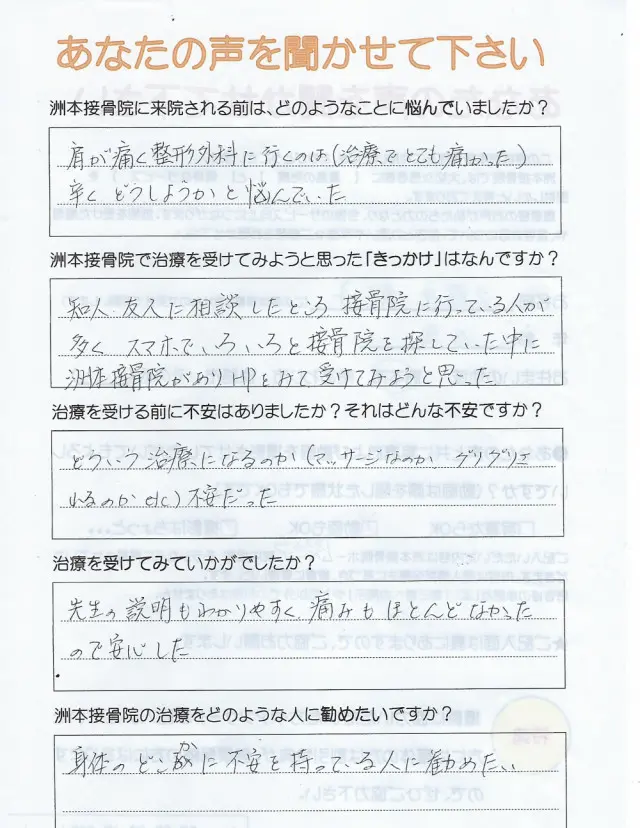 あなたの声を聞かせて下さい
洲本接骨院に来院される前は、どのようなことに悩んでいましたか？
肩が痛く整形外科に行くのは(治療でとても痛かった)
辛くどうしようかと悩んでいた
洲本接骨院で治療を受けてみようと思った「きっかけ」はなんですか？
知人、友人に相談したところ 接骨院に行っている人が
多く スマホでいろいろと接骨院を探していた中に
洲本接骨院がありHPをみて受けてみようと思った
治療を受ける前に不安はありましたか？それはどんな不安ですか？
どういう治療になるのか(マッサージなのか グリグリ
るのか etc)不安だった
治療を受けてみていかがでしたか？
先生の説明もわかりやすく、痛みもほとんどなかった
ので安心した
洲本接骨院の治療をどのような人に勧めたいですか？
身体のどこかに不安を持っている人に勧めたい